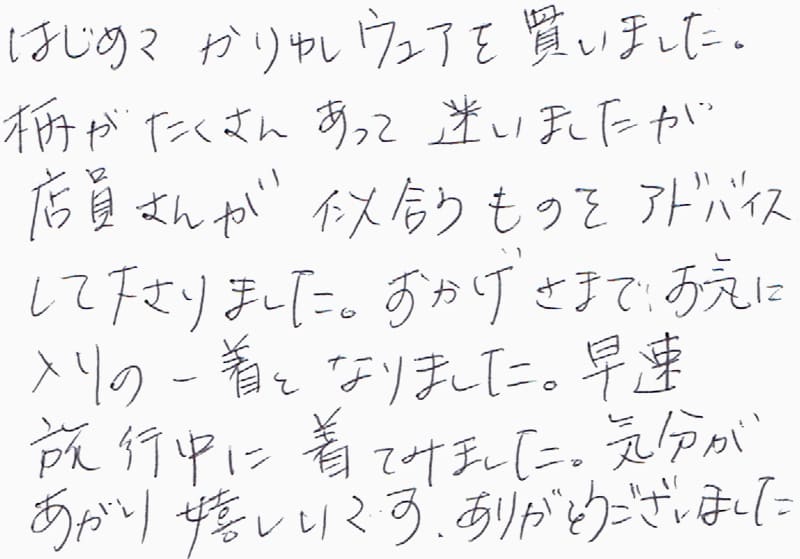 はじめて かりゆしウェアを 買いました。
柄が たくさん あって 迷いましたが
店員さんが 似合う ものを アドバイス
して下さりました。おかげ さまで、お気に
入りの 一着と なりました。早速
旅行中に 着てみました。気分が
あがり 嬉しいです。ありがとうございました